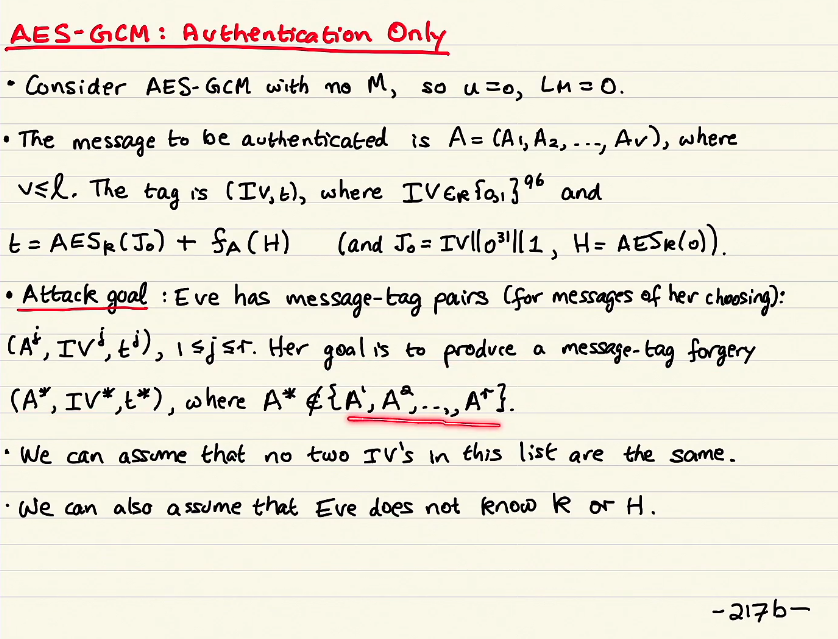 AES-GCM: Authentication Only
• Consider AES-GCM with no M, so u=0, LM=0.
• The message to be authenticated is A=(A1,A2,...,Av), where
v≤l. The tag is (IV,t), where IV∈R{0,1}^96 and
t = AESk(J0) + fA(H) (and J0=IV||0^31||1, H=AESk(0)).
• Attack goal: Eve has message-tag pairs (for messages of her choosing):
(A^j, IV^j, t^j), 1≤j≤r. Her goal is to produce a message-tag forgery
(A*, IV*, t*), where A* ∉ {A^1, A^2, ..., A^r}.
• We can assume that no two IV's in this list are the same.
• We can also assume that Eve does not know k or H.
-217b-